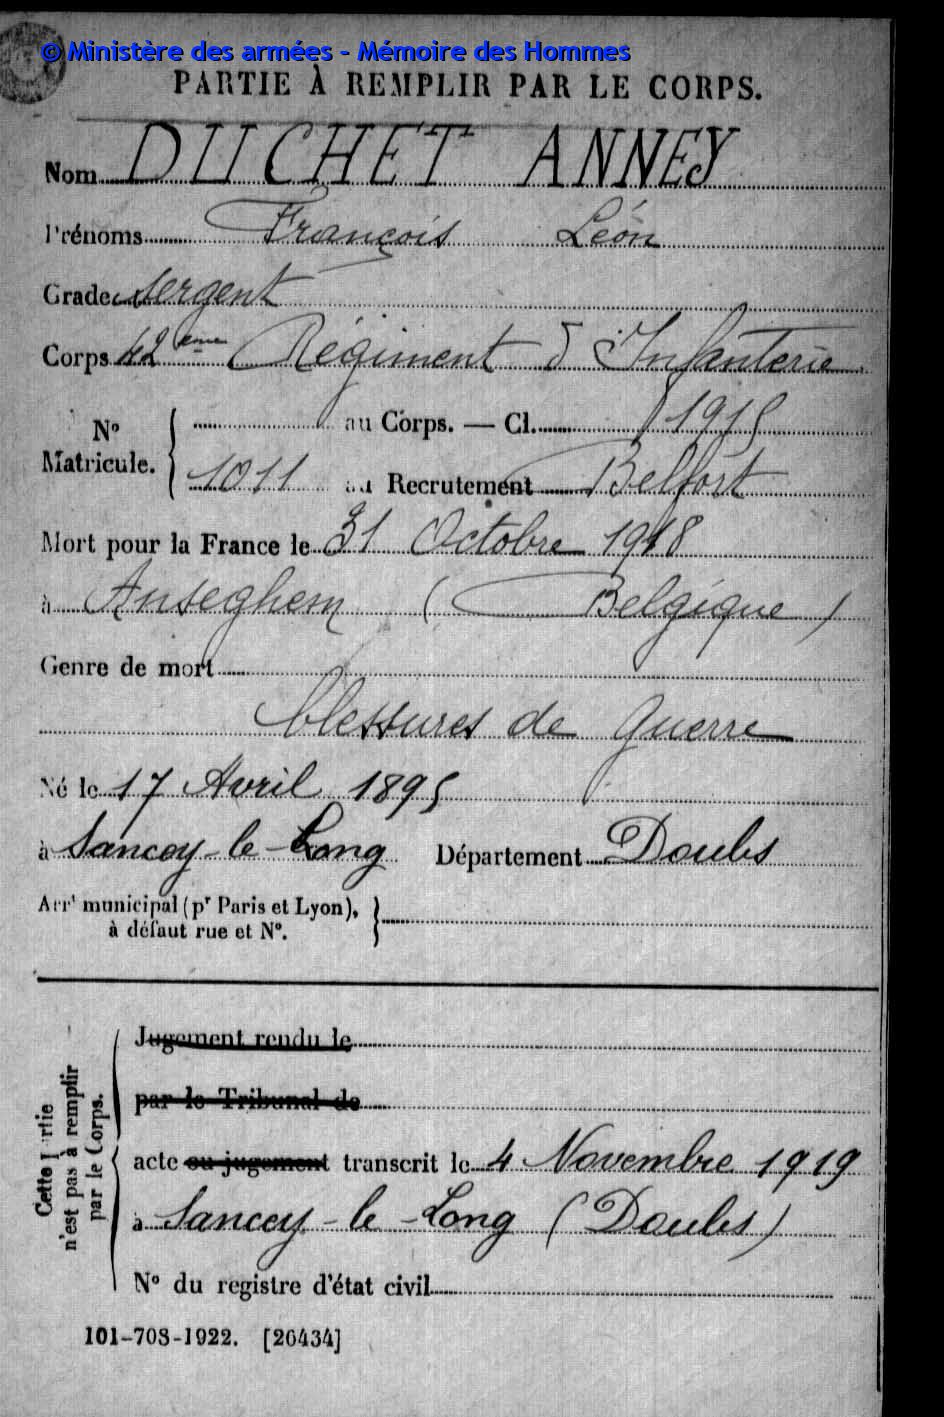 © Ministère des armées - Mémoire des Hommes
PARTIE À REMPLIR PAR LE CORPS.
Nom DUCHET ANNEY
Prénoms François Léon
Grade sergent
Corps 42eme Régiment d'Infanterie
N° Matricule. { au Corps. — Cl. 1915
1011 au Recrutement Belfort
Mort pour la France le 31 Octobre 1918
à Anseghem (Belgique)
Genre de mort
blessures de guerre
Né le 17 Avril 1895
à Sancey-le-Long Département Doubs
Arrt municipal (pr Paris et Lyon),
à défaut rue et N°.
Jugement rendu le
par le Tribunal de
acte ou jugement transcrit le 4 Novembre 1919
à Sancey-le-Long (Doubs)
N° du registre d'état civil
Cette Partie
n'est pas à remplir
par le Corps.
101-708-1922. [26434]